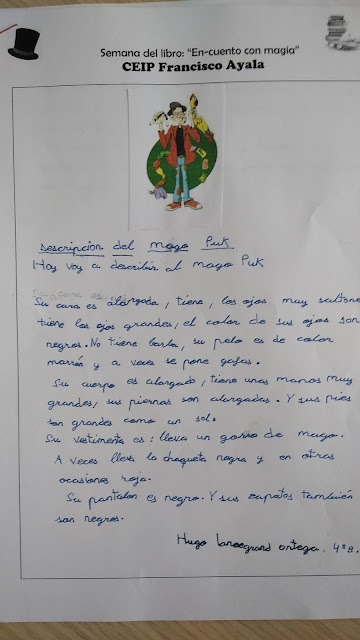 Semana del libro: "En-cuento con magia"
CEIP Francisco Ayala
Descripción del mago Puk
Hoy voy a describir al mago Puk
Su cara es alargada, tiene, los ojos muy
tiene los ojos grandes, el color de sus ojos son
negros. No tiene barba, su pelo es de color
marrón y a veces se pone gafas.
Su cuerpo es alargado, tiene unas manos muy
grandes, sus piernas son alargadas. Y sus pies
son grandes como un sol.
Su vestimenta es: lleva un gorro de mago.
A veces lleva la chaqueta negra y en otras
ocasiones roja.
Su pantalon es negro. Y sus zapatos también
son negros.
Hugo ortega. 4º B.